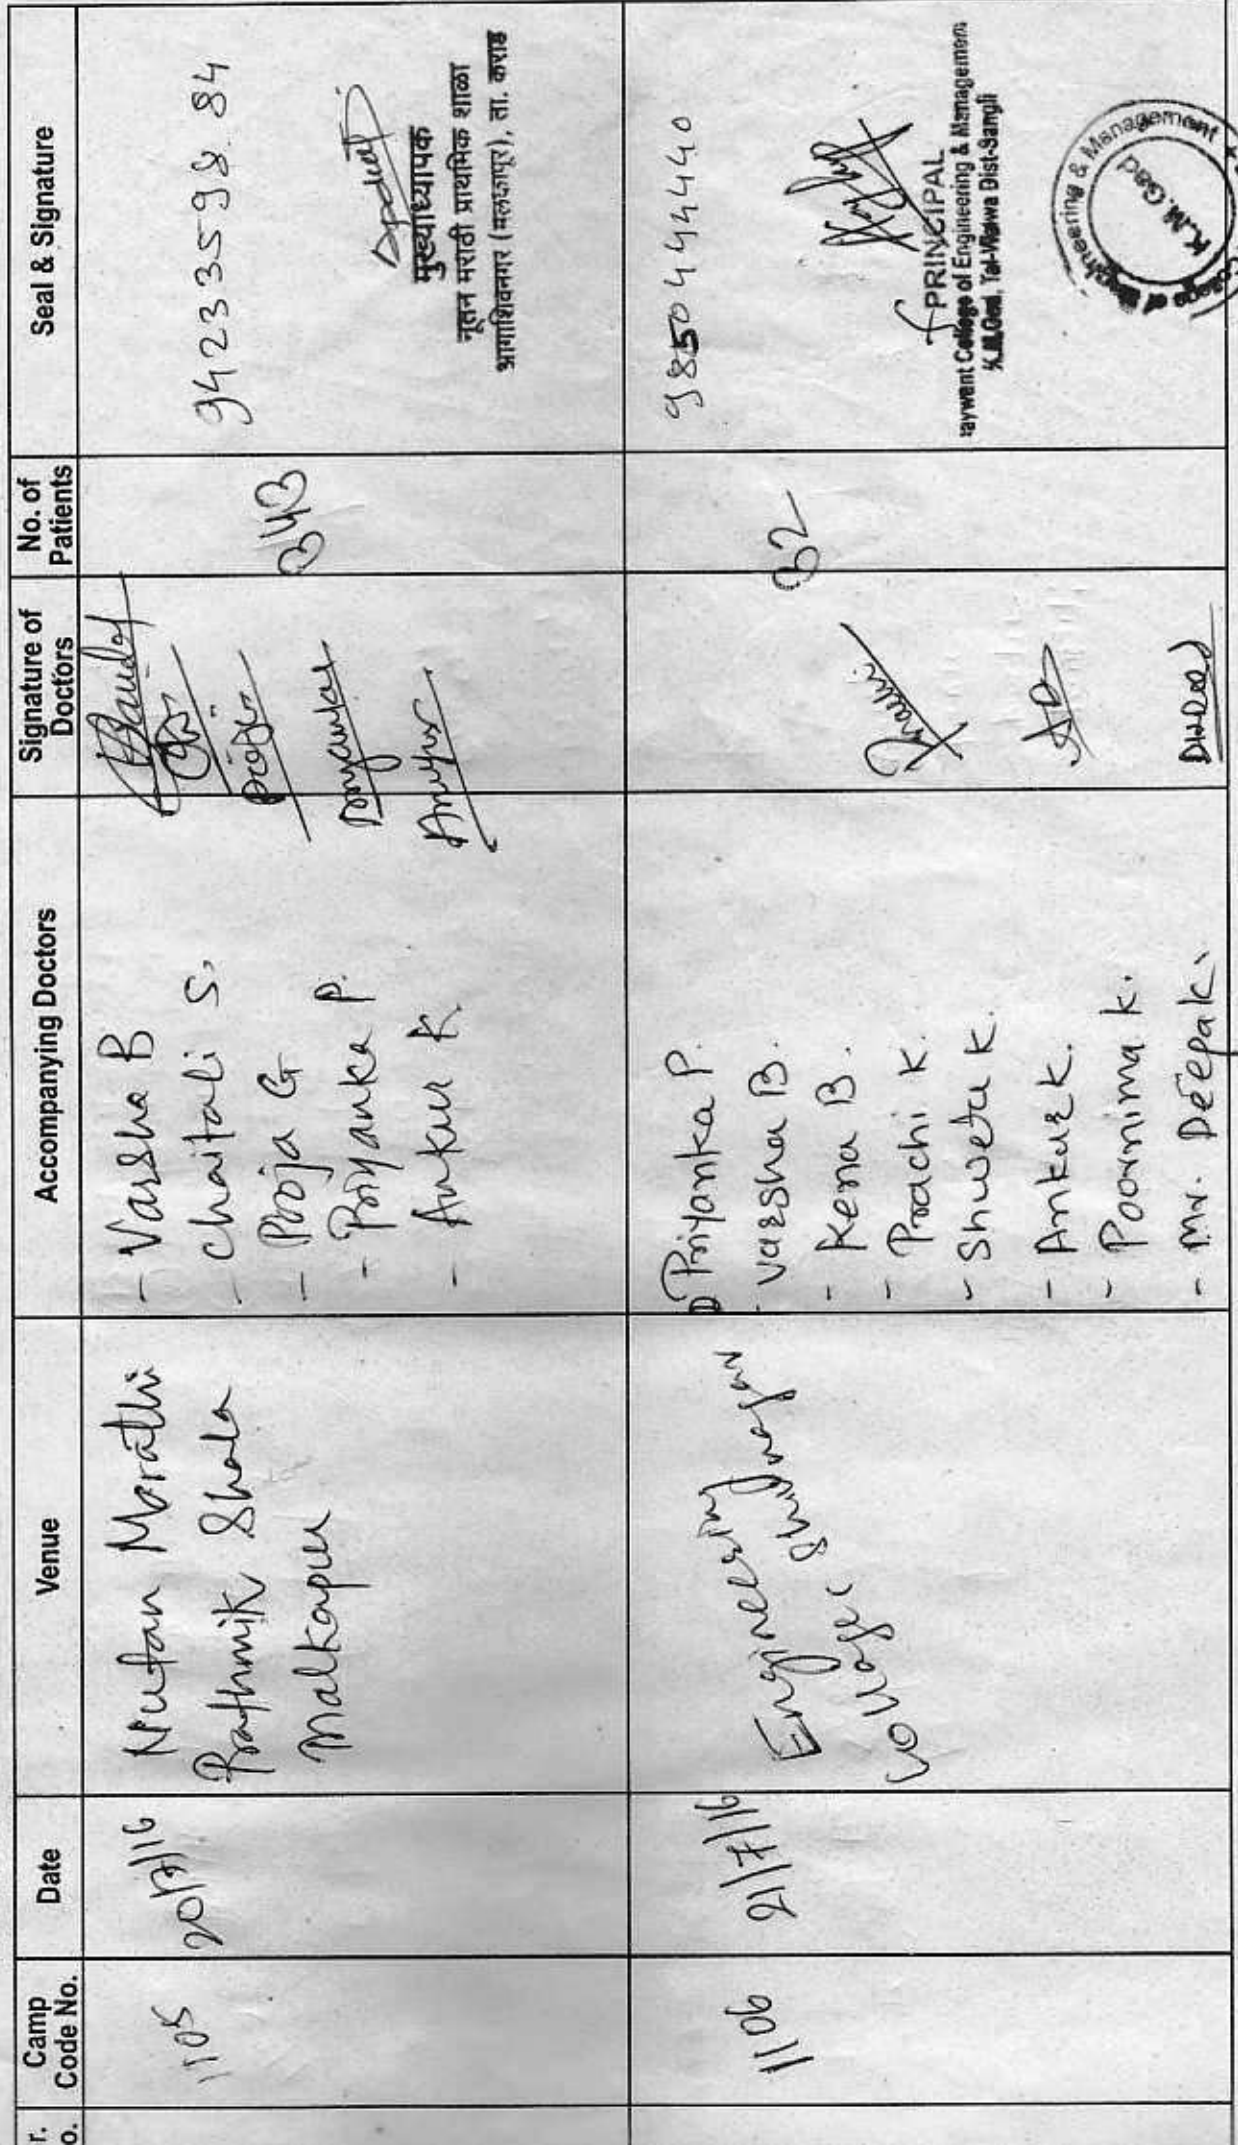 r.
o.
Camp
Code No.
Date
Venue
Accompanying Doctors
Signature of
Doctors
No. of
Patients
Seal & Signature
1105
20/7/16
Nutan Marathi
Prathmik Shala
Malkapur
- Varsha B
- Chaitali S.
- Pooja G
- Priyanka P.
- Ankur K.
343
9423359884
मुख्याध्यापक
नूतन मराठी प्राथमिक शाळा
आगाशिवनगर (मलकापूर), ता. कराड
1106
21/7/16
Engineering
College
Priyanka P.
- Varsha B.
- Kena B.
- Prachi K.
- Shweta K.
- Ankur K.
- Poornima K.
- Mr. Deepak.
32
9850444440
PRINCIPAL
College of Engineering & Management
K.M.Gad, Tal-Walwa Dist-Sangli
College of Engineering & Management
K.M. Gad